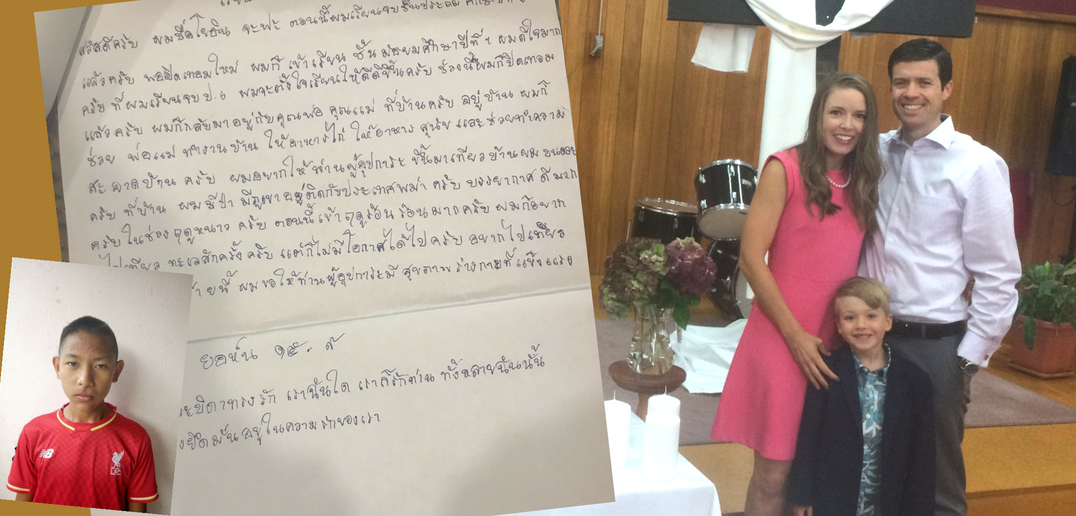 สวัสดีครับ ผมชื่อโยฮัน จะฟะ ตอนนี้ผมเรียนจบชั้นประถม
แล้วครับ พอเปิดเทอมใหม่ ผมก็ เข้าเรียน ชั้น มัธยมศึกษาปีที่ ๑ ผมดีใจมาก
ครับ ที่ผมเรียนจบ ป.๖ ผมจะตั้งใจเรียนให้ดีดีขึ้นครับ ช่วงนี้ผมก็ปิดเทอม
แล้วครับ ผมก็กลับมาอยู่กับคุณพ่อ คุณแม่ ที่บ้านครับ อยู่บ้าน ผมก็
ช่วย พ่อแม่ ทำงานบ้าน ให้อาหารไก่ ให้อาหาร สุนัข และช่วยทำความ
สะอาดบ้าน ครับ ผมอยากให้ท่านผู้อุปการะ ขึ้นมาเที่ยวบ้านผม บนดอย
ครับ ที่บ้าน ผมมีป่า มีภูเขา อยู่ติดกับประเทศพม่า ครับ บรรยากาศ ดีมาก
ครับ ในช่วง ฤดูหนาว ครับ ตอนนี้เข้า ฤดูร้อน ร้อน มากครับ ผมก็อยาก
ไปเที่ยว ทะเลสักครั้ง ครับ แต่ก็ไม่มีโอกาสได้ไปครับ อยากไปเที่ยว
ยนี้ ผมขอให้ท่านผู้อุปการะมี สุขภาพ ร่างกายที่แข็งแรง
ยอห์น ๑๕.๙
ะบิดาทรงรัก เราฉันใด เราก็รักท่าน ทั้งหลายฉันนั้น
งยึดมั่นอยู่ในความรักของเรา
NB